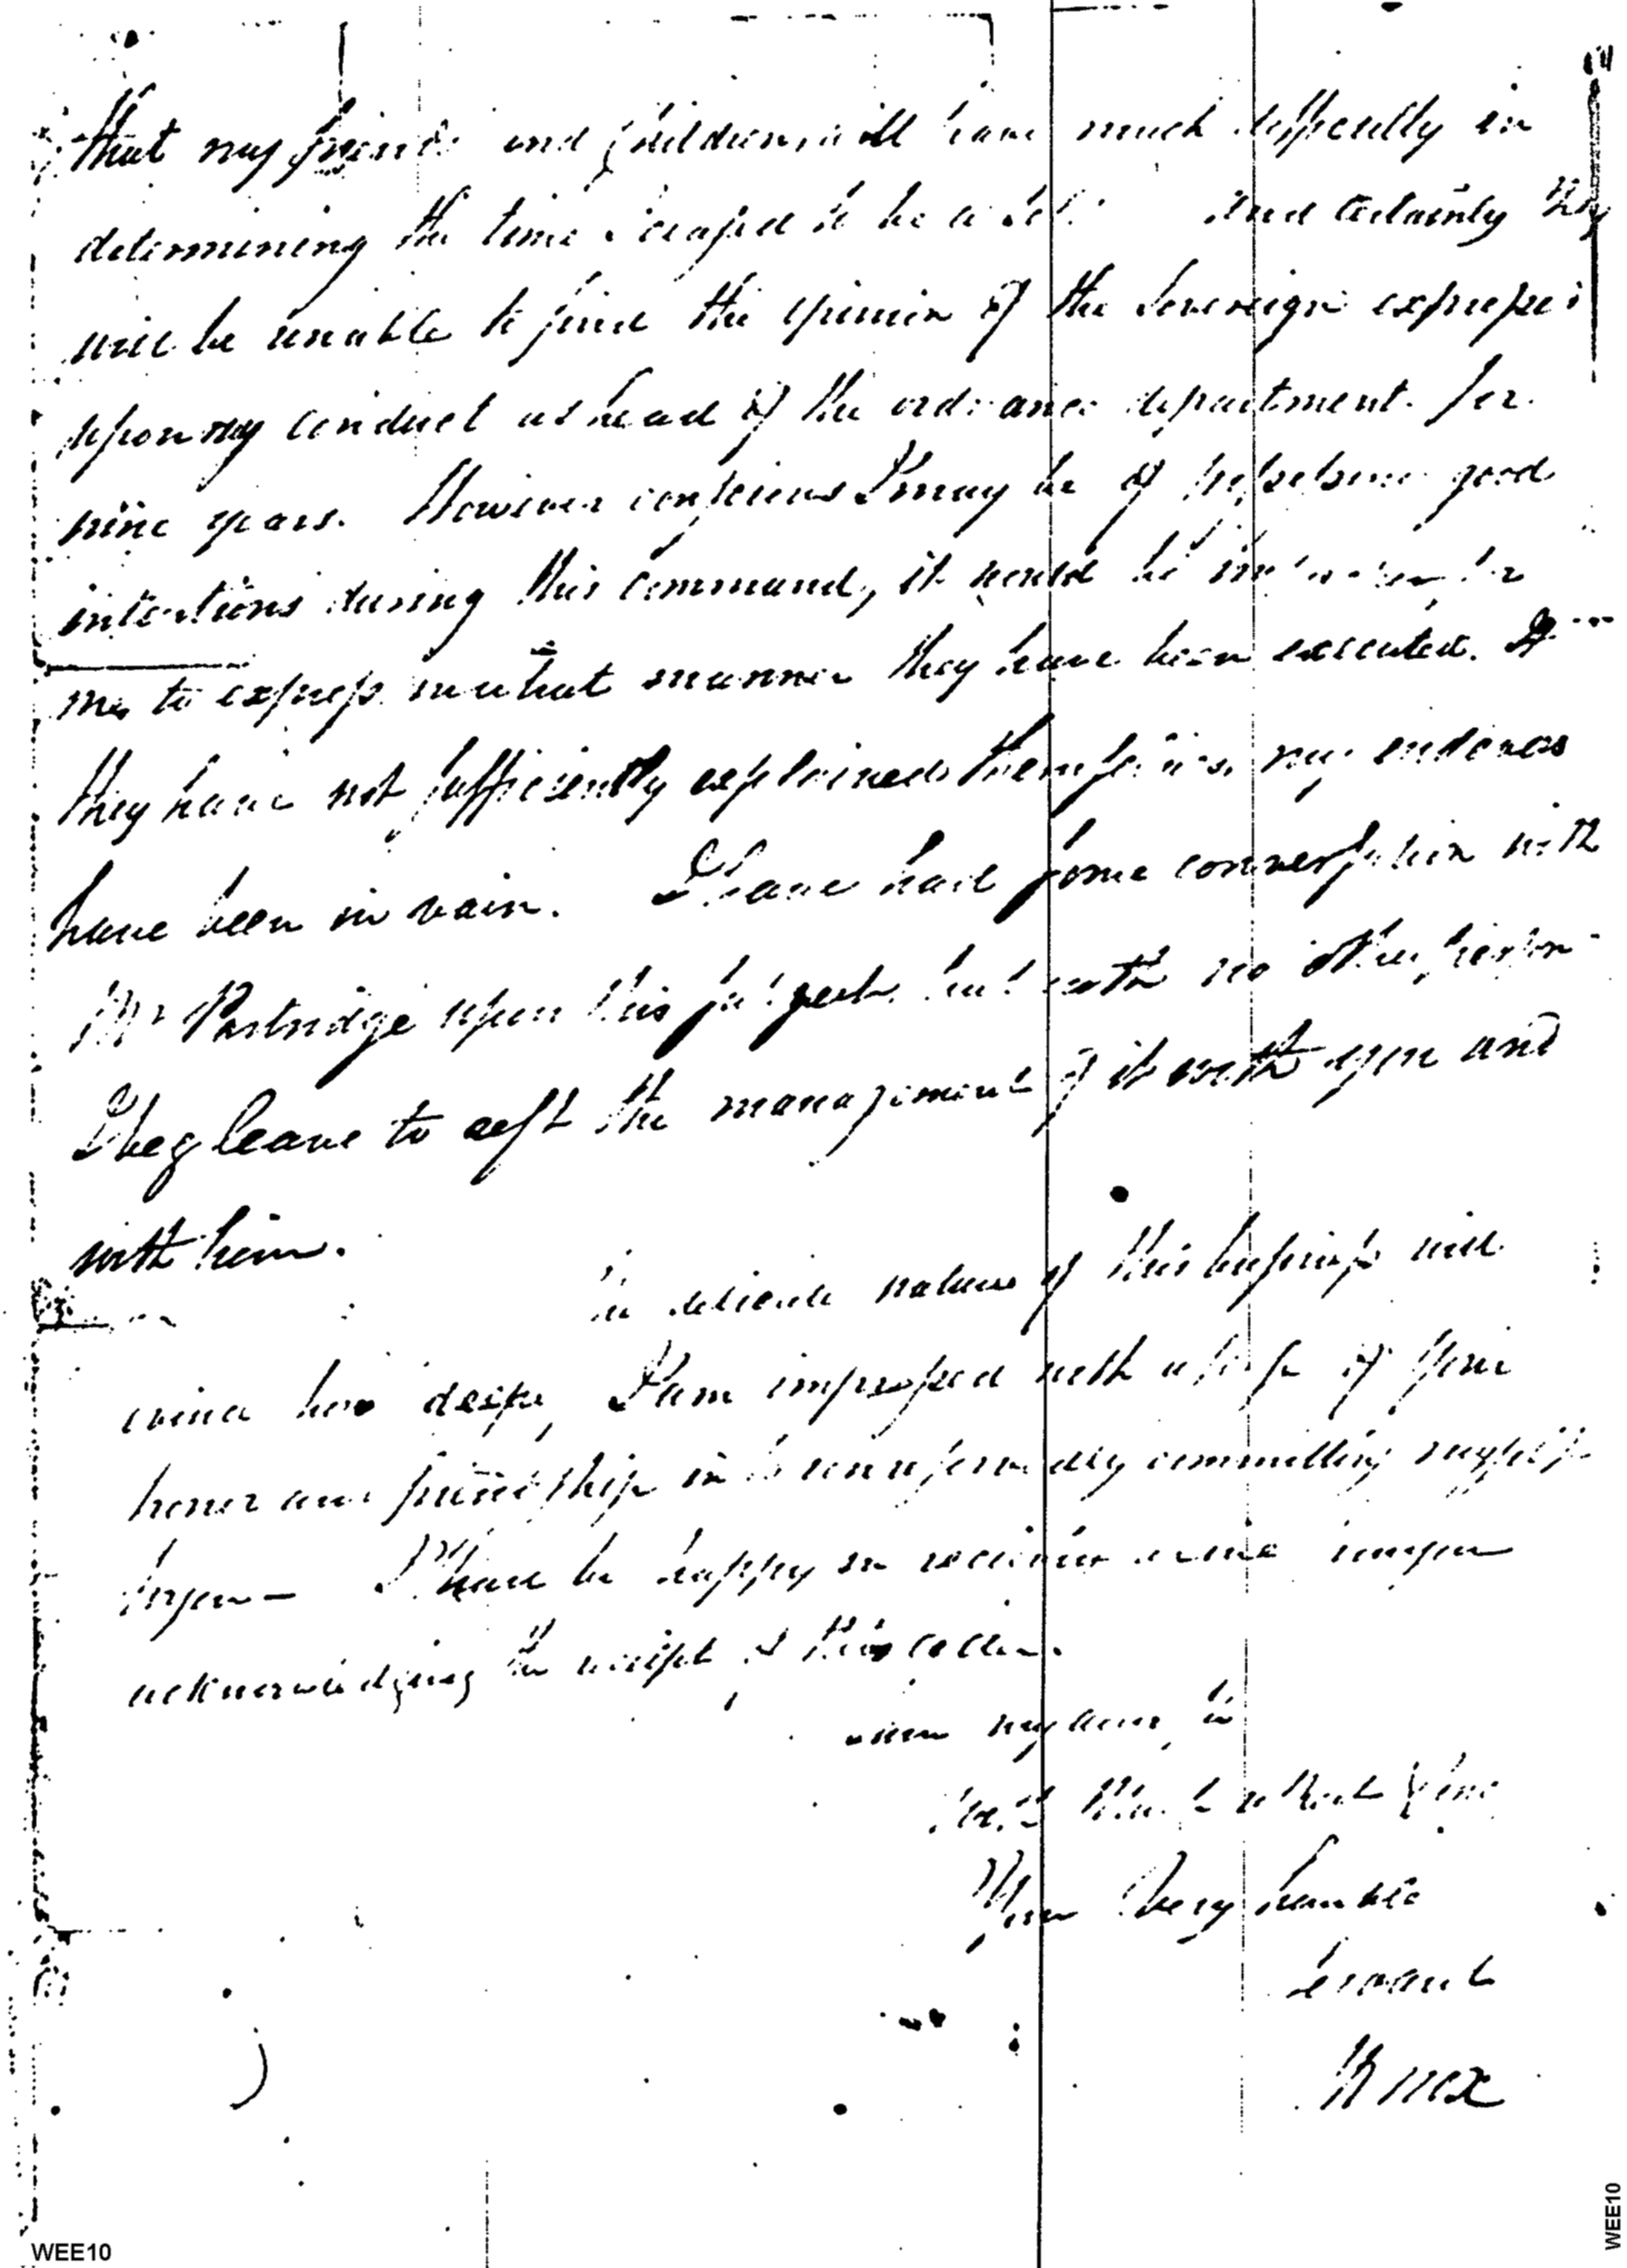 that my friends and children will have much difficulty in
determining the time I ceased to be a and certainly they
will be unable to find the opinion of the Sovereign expressed
upon my conduct as head of the ordnance department for
nine years. However conscious I may be of good
intentions during this command, it would be for
me to express in what manner they have been executed. If
they have not sufficiently explained themselves my endeavors
have been in vain. I have had some conversation with
Mr Partridge upon this subject, but with no other person
I beg leave to rest the management of it with you and
with him.
The delicate nature of this business will
evince how deeply I am impressed with a sense of your
honor and friendship in so unreservedly committing myself
to you — I shall be happy in receiving a line from you
acknowledging the receipt of this letter.
I am my dear Sir
with
Your very humble
Servant
H Knox
WEE10
WEE10